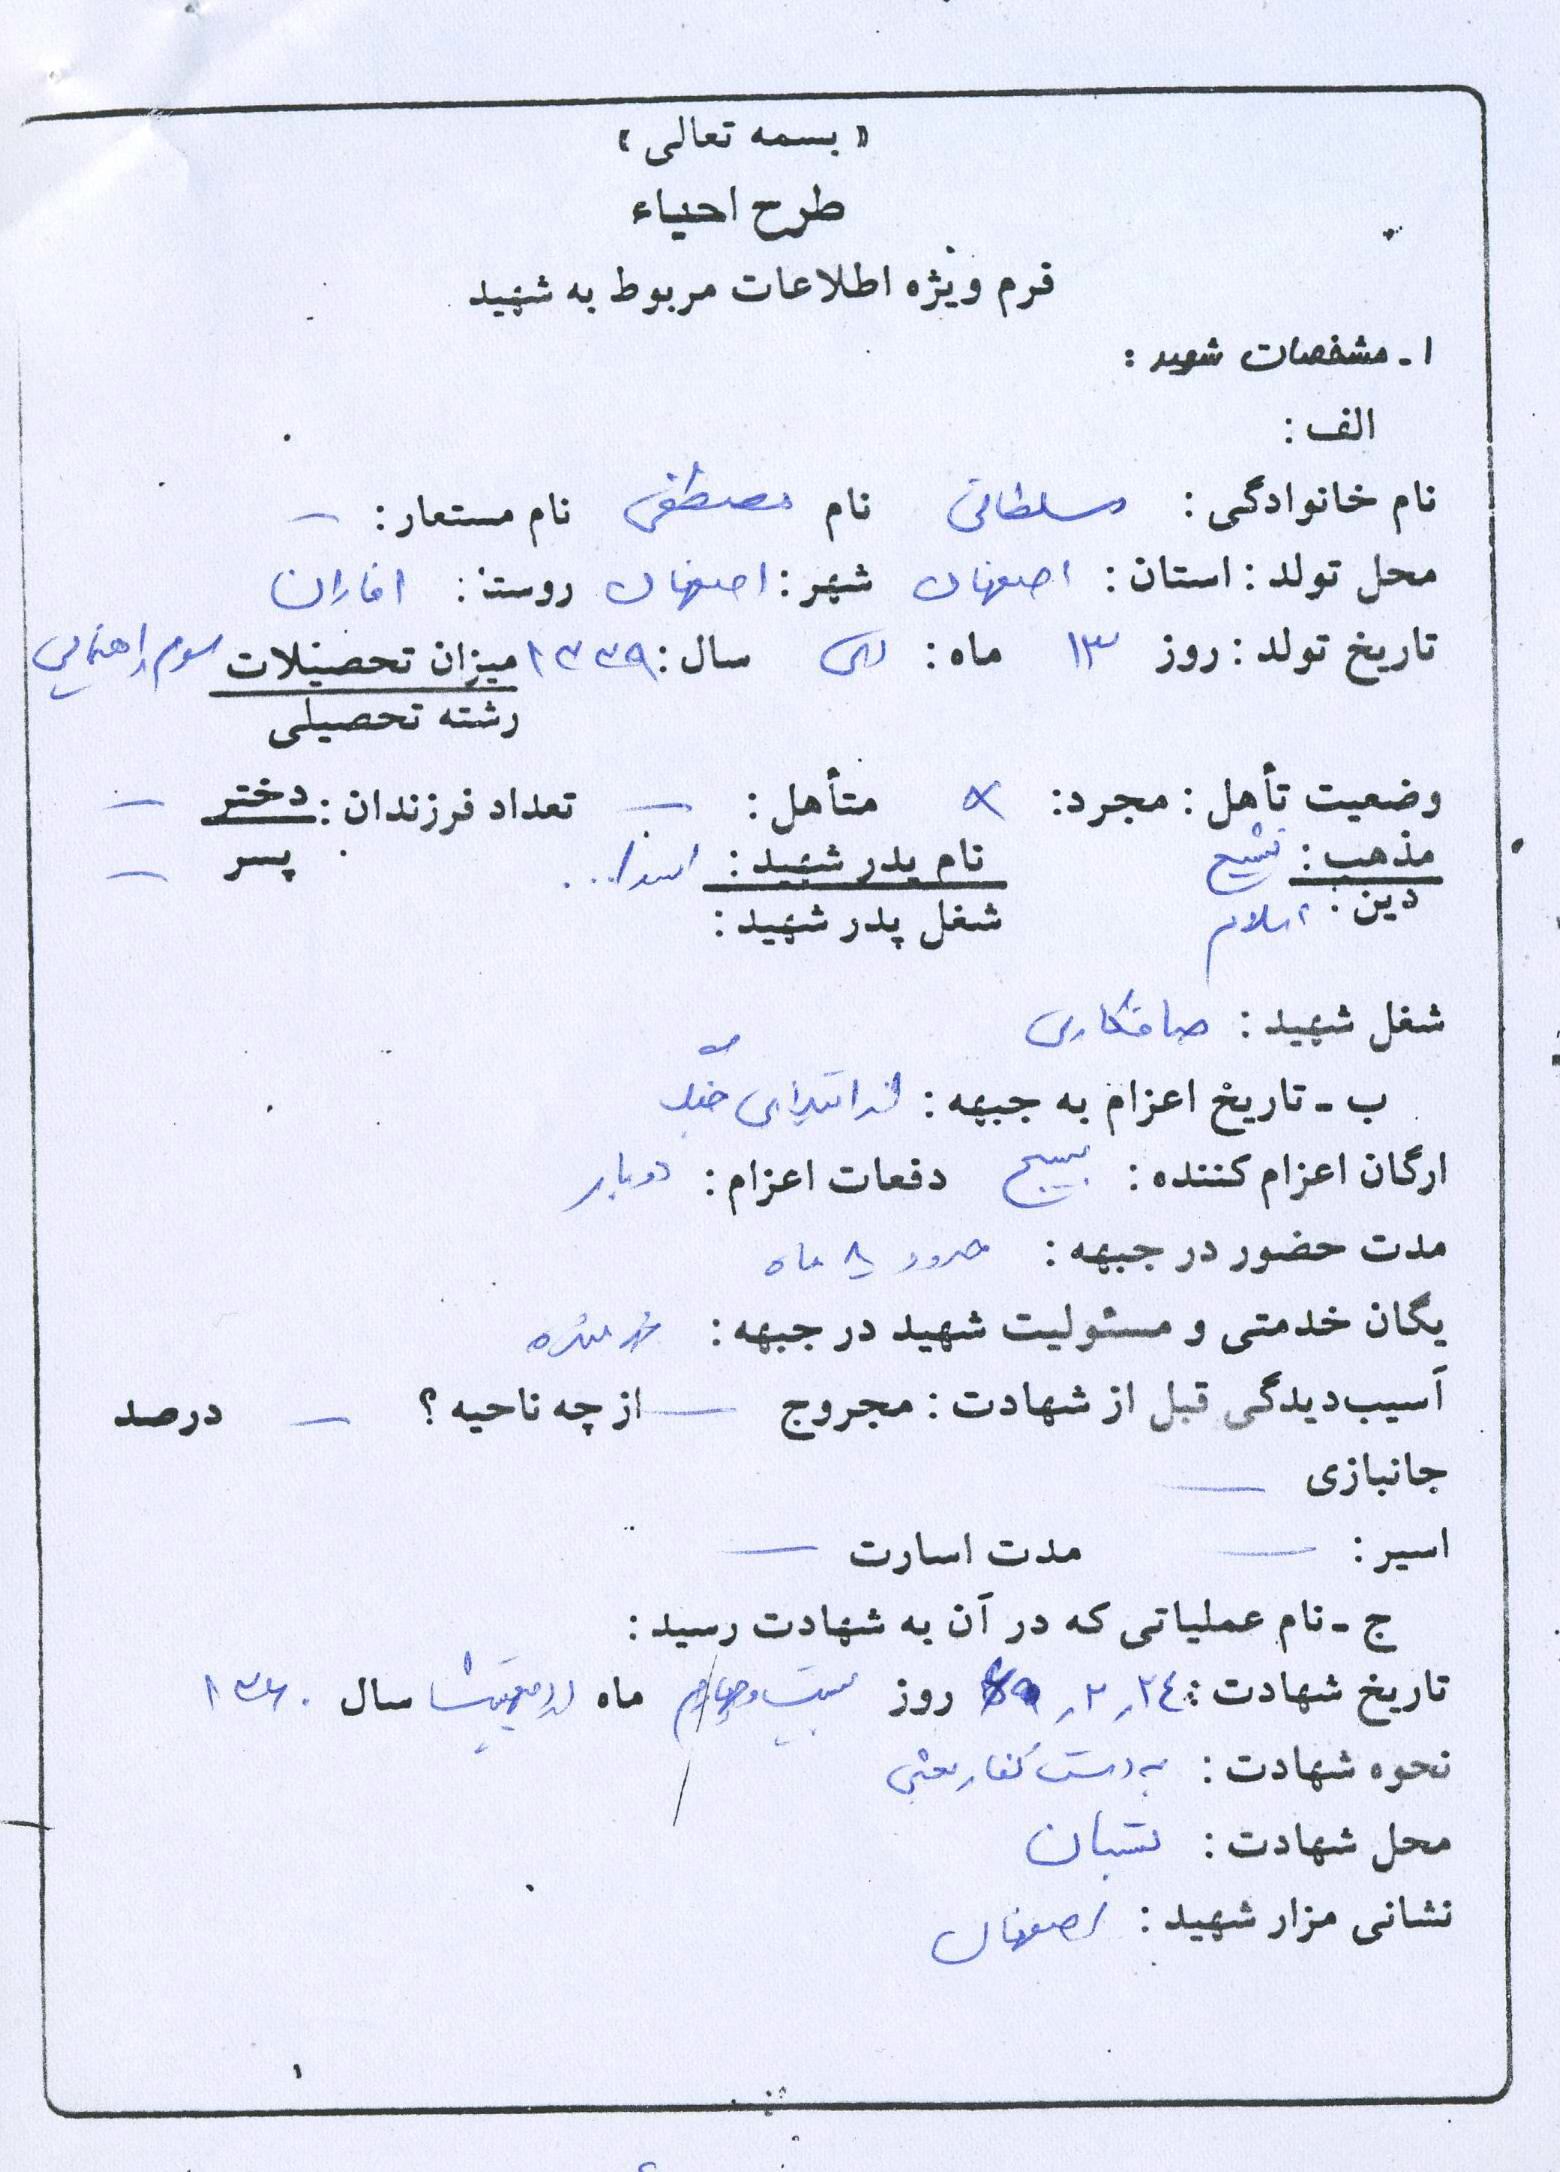 « بسمه تعالی »
طرح احیاء
فرم ویژه اطلاعات مربوط به شهید
۱ـ مشخصات شهید :
الف :
نام خانوادگی : سلطانی نام مصطفی نام مستعار : —
محل تولد : استان : اصفهان شهر : اصفهان روستا : افاران
تاریخ تولد : روز ۱۳ ماه : دی سال : ۱۳۳۹ میزان تحصیلات سوم راهنمایی
رشته تحصیلی
وضعیت تأهل : مجرد : × متأهل : — تعداد فرزندان : دختر —
پسر —
مذهب : تشیع نام پدر شهید : اسدا...
دین : اسلام شغل پدر شهید :
شغل شهید : صافکاری
ب ـ تاریخ اعزام به جبهه : از ابتدای جنگ
ارگان اعزام کننده : بسیج دفعات اعزام : دوبار
مدت حضور در جبهه : حدود ۸ ماه
یگان خدمتی و مسئولیت شهید در جبهه : رزمنده
آسیب‌دیدگی قبل از شهادت : مجروح — از چه ناحیه ؟ — درصد
جانبازی —
اسیر : — مدت اسارت —
ج ـ نام عملیاتی که در آن به شهادت رسید :
تاریخ شهادت : ۲۴ ر ۲ ر روز بیست و چهارم ماه اردیبهشت سال ۱۳۶۰
نحوه شهادت : به دست کفار بعثی
محل شهادت :
نشانی مزار شهید : اصفهان
۱